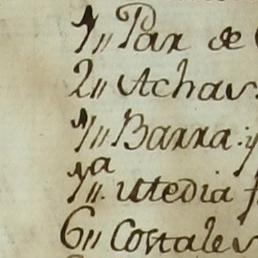 1,, Par de
2,, Achas
1,, Barra: y
1ª,, Media f
6,, Costales